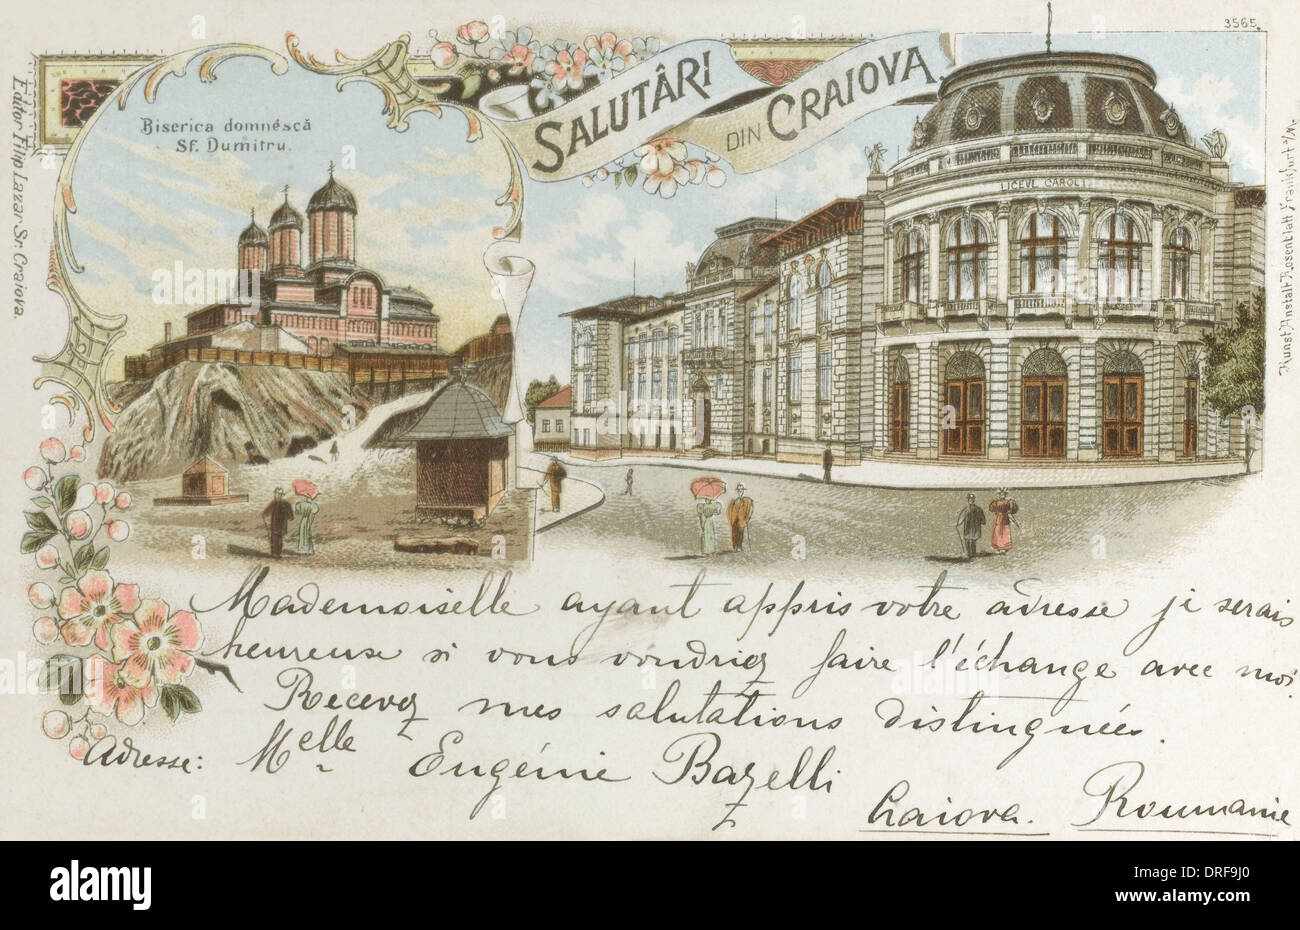 3565.
SALUTÂRI
DIN CRAIOVA.
Biserica domnéscă
Sf. Dumitru.
LICEVL CAROL I
Editor Filip Lazar Sr. Craiova.
Kunst Anstalt Rosenblatt Frankfurt a/M.
Mademoiselle ayant appris votre adresse je serais
heureuse si vous voudriez faire l'échange avec moi.
Recevez mes salutations distinguées.
Adresse: Melle Eugénie Bazelli
Craiova. Roumanie
alamy
Image ID: DRF9J0
www.alamy.com